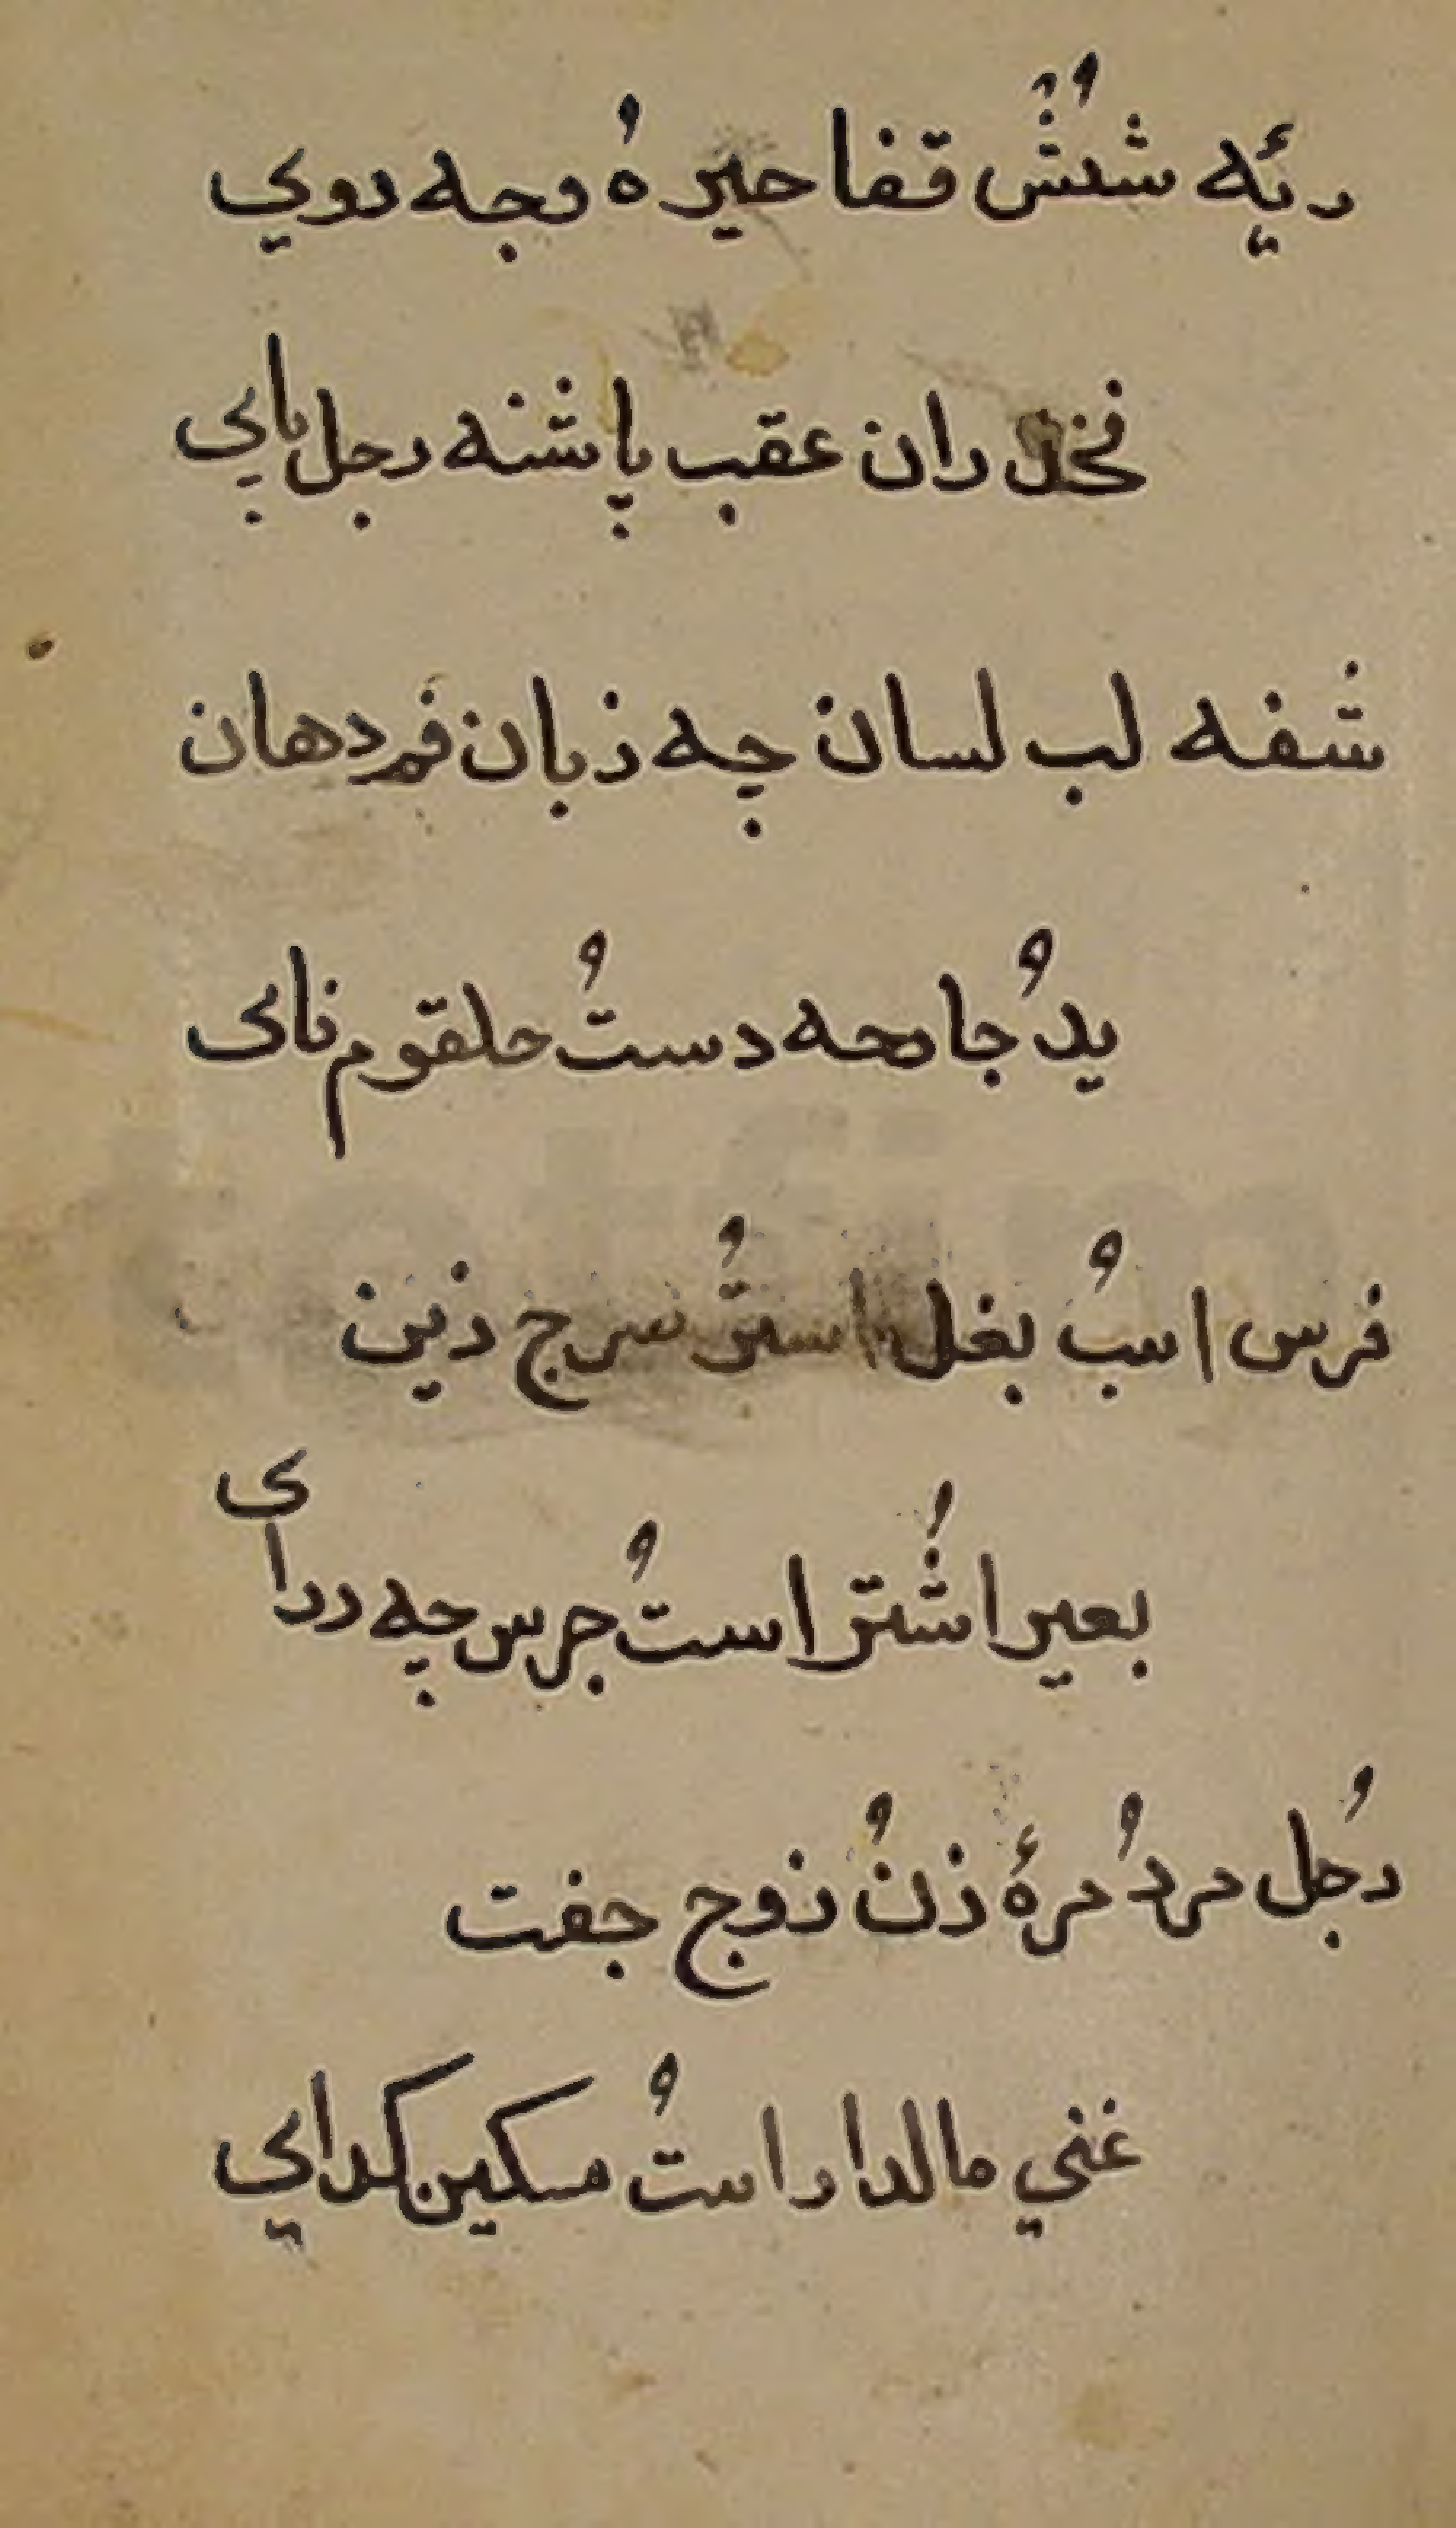 ریٔه شُشْ قفا حیر هُ وجه روي
فخذ ران عقب پاشنه رجل پاي
شفه لب لسان چه زبان فم دهان
یدُ جارحه دستُ حلقوم نای
فرس اسبُ بغل استرُ سرج زین
بعیر اشتر استُ جرس چه درای
رُجل مردُ مرهٔ زنُ زوج جفت
غني مالدار استُ مسکین کداي